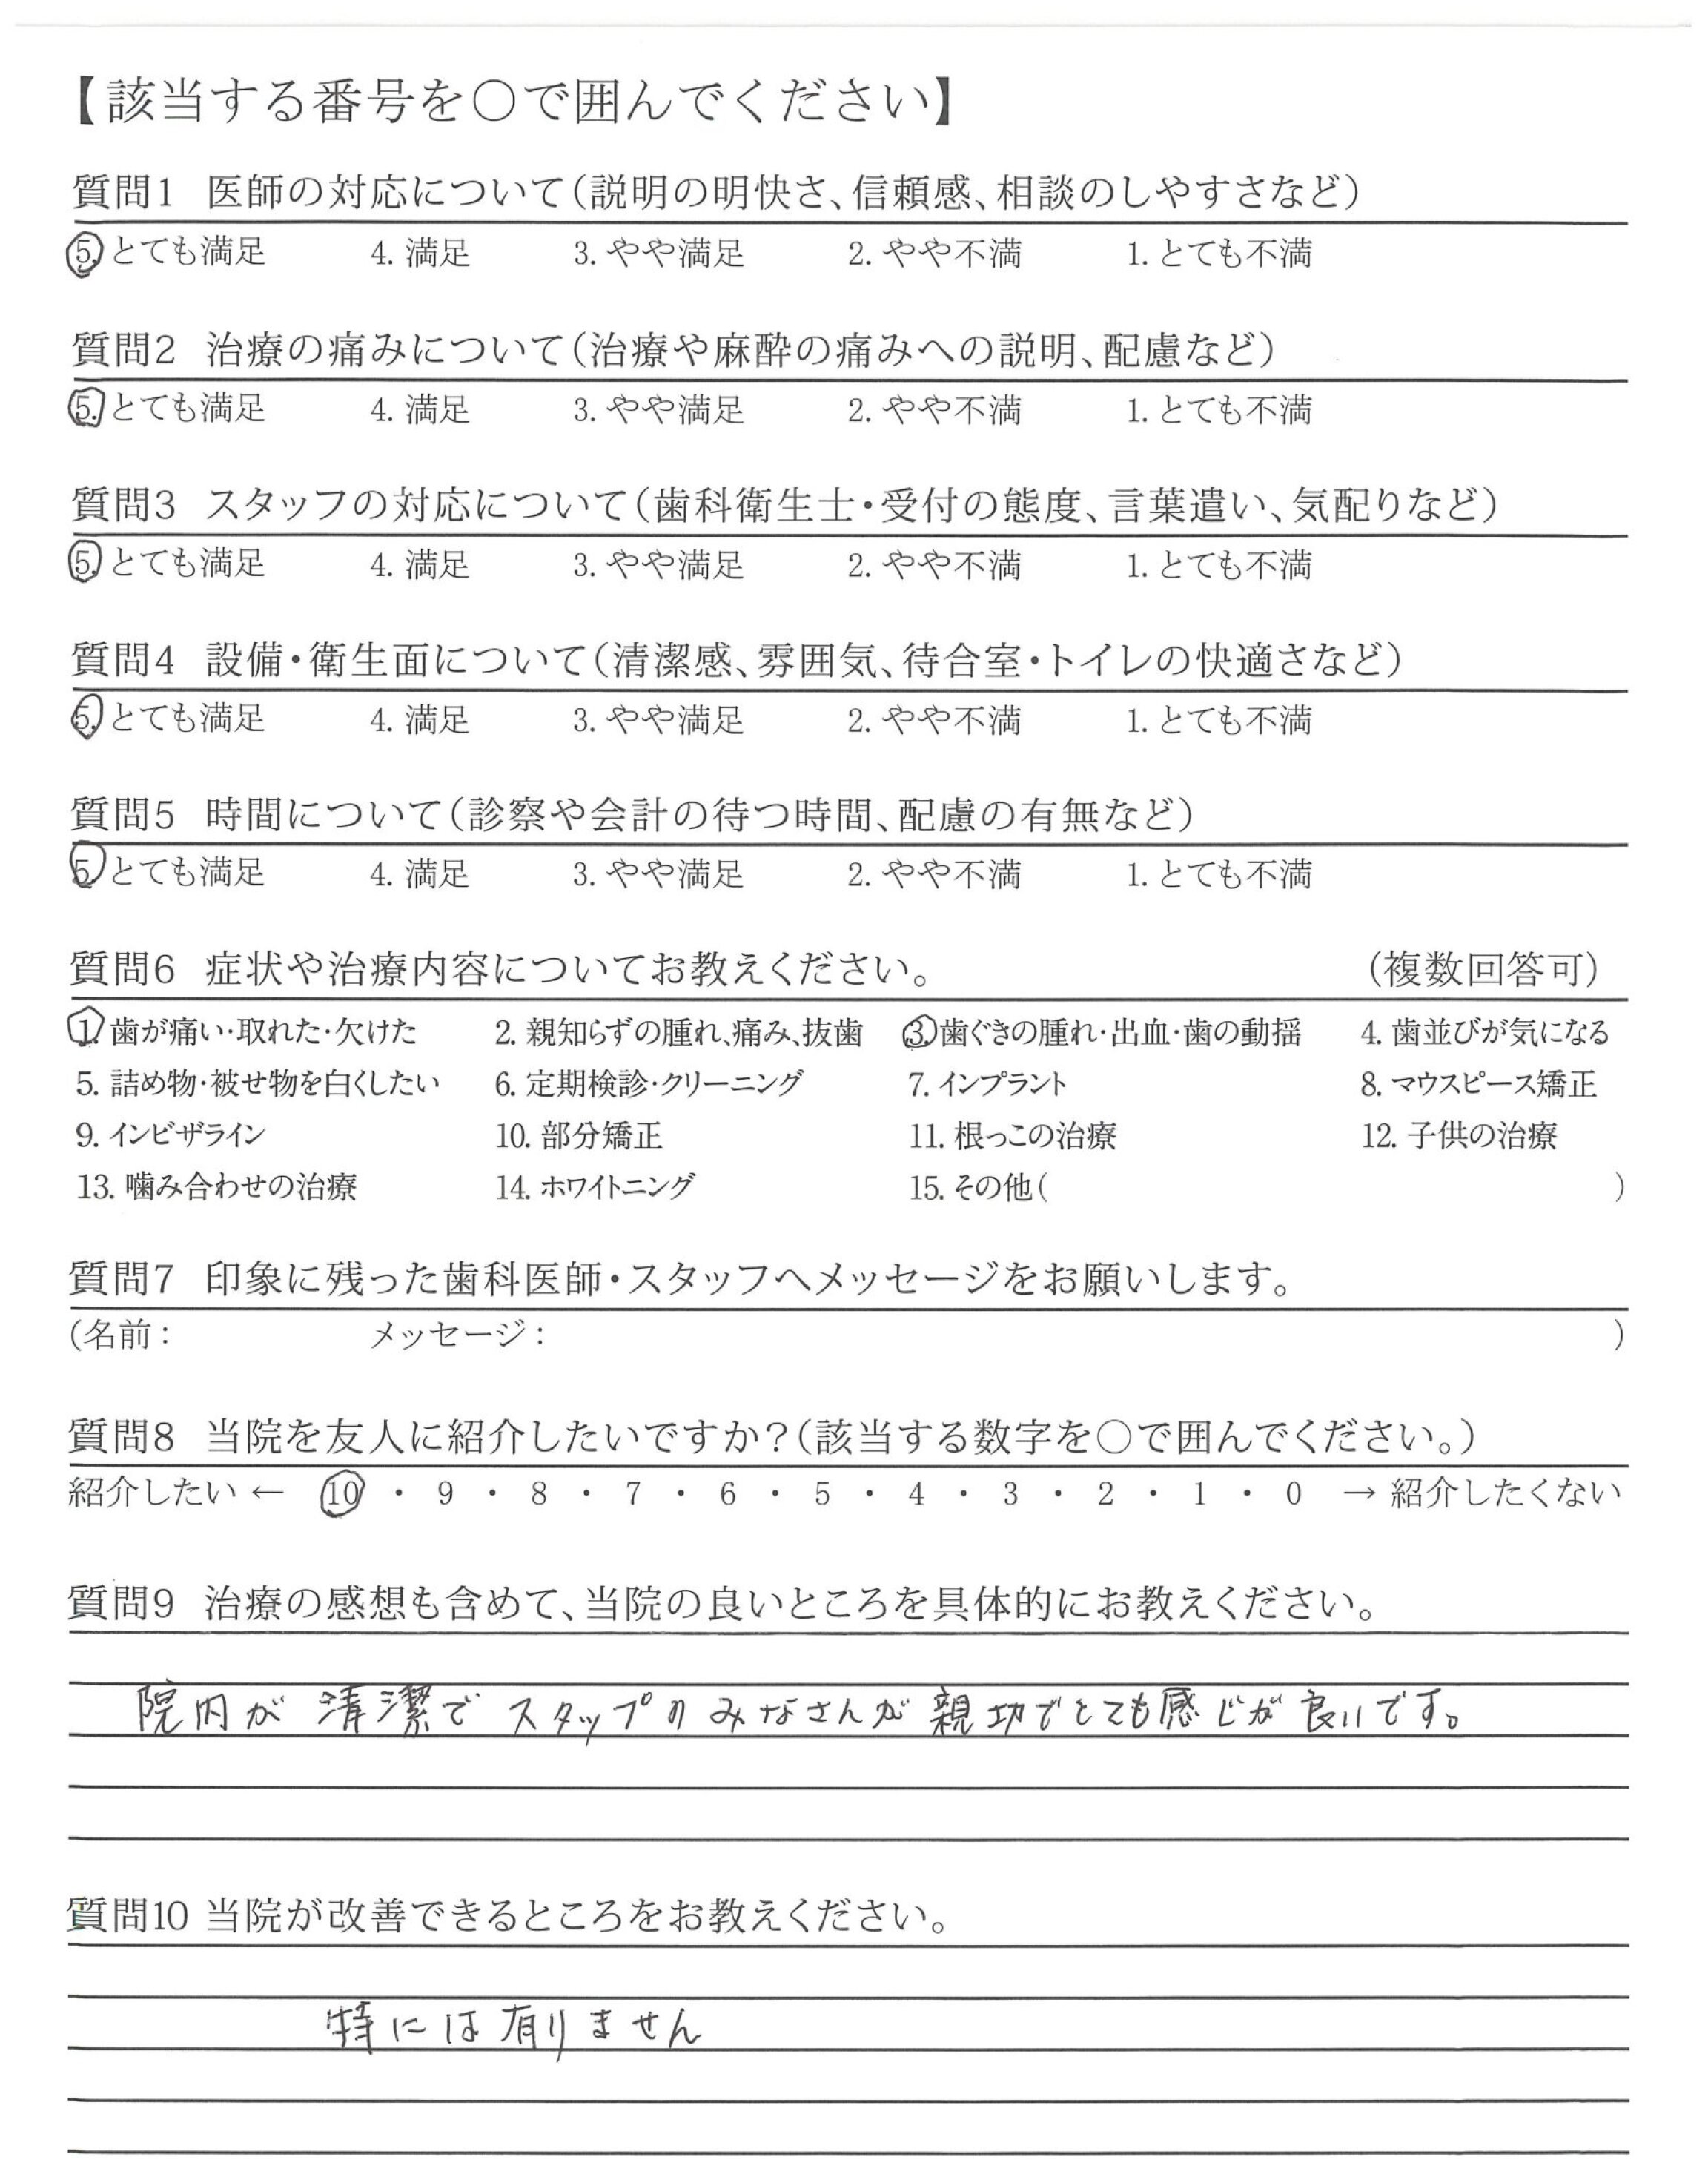 【該当する番号を○で囲んでください】
質問1 医師の対応について(説明の明快さ、信頼感、相談のしやすさなど)
5. とても満足 4. 満足 3. やや満足 2. やや不満 1. とても不満
質問2 治療の痛みについて(治療や麻酔の痛みへの説明、配慮など)
5. とても満足 4. 満足 3. やや満足 2. やや不満 1. とても不満
質問3 スタッフの対応について(歯科衛生士・受付の態度、言葉遣い、気配りなど)
5. とても満足 4. 満足 3. やや満足 2. やや不満 1. とても不満
質問4 設備・衛生面について(清潔感、雰囲気、待合室・トイレの快適さなど)
5. とても満足 4. 満足 3. やや満足 2. やや不満 1. とても不満
質問5 時間について(診察や会計の待つ時間、配慮の有無など)
5. とても満足 4. 満足 3. やや満足 2. やや不満 1. とても不満
質問6 症状や治療内容についてお教えください。 (複数回答可)
1. 歯が痛い・取れた・欠けた 2. 親知らずの腫れ、痛み、抜歯 3. 歯ぐきの腫れ・出血・歯の動揺 4. 歯並びが気になる
5. 詰め物・被せ物を白くしたい 6. 定期検診・クリーニング 7. インプラント 8. マウスピース矯正
9. インビザライン 10. 部分矯正 11. 根っこの治療 12. 子供の治療
13. 噛み合わせの治療 14. ホワイトニング 15. その他( )
質問7 印象に残った歯科医師・スタッフへメッセージをお願いします。
(名前: メッセージ: )
質問8 当院を友人に紹介したいですか?(該当する数字を○で囲んでください。)
紹介したい ← 10 ・ 9 ・ 8 ・ 7 ・ 6 ・ 5 ・ 4 ・ 3 ・ 2 ・ 1 ・ 0 → 紹介したくない
質問9 治療の感想も含めて、当院の良いところを具体的にお教えください。
院内が清潔でスタップのみなさんが親切でとても感じが良いです。
質問10 当院が改善できるところをお教えください。
特には有りません